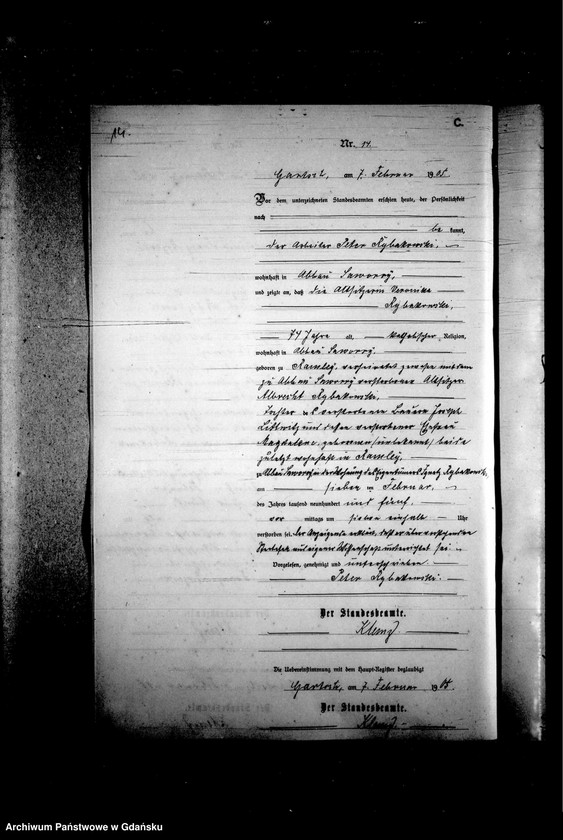 14.
C.
Nr. 14.
am 7. Februar 1905
Vor dem unterzeichneten Standesbeamten erschien heute, der Persönlichkeit
nach
be kannt,
der Arbeiter Peter Rybakowski,
wohnhaft in Abbau Saworry,
und zeigte an, daß die Altsitzerin Veronika
Rybakowski,
74 Jahre alt, katholischer Religion,
wohnhaft in Abbau Saworry,
geboren zu Ramley, verheiratet gewesen mit dem
zu Abbau Saworry verstorbenen Altsitzer
Albrecht Rybakowski,
Tochter des verstorbenen Bauern Joseph
und dessen verstorbener Ehefrau
Magdalena, geborene (unbekannt) beide
zuletzt wohnhaft in Ramley,
zu Abbau Saworry in der Wohnung des Eigentümers Ignatz Rybakowski,
am sieben ten Februar,
des Jahres tausend neunhundert und fünf,
vor mittags um sieben einhalb Uhr
verstorben sei. Der Anzeigende erklärt, daß er über vorstehenden
Sterbefall aus eigener Wissenschaft unterrichtet sei.
Vorgelesen, genehmigt und unterschrieben
Peter Rybakowski.
Der Standesbeamte.
Klemz
Die Uebereinstimmung mit dem Haupt-Register beglaubigt
am 7. Februar 1905.
Der Standesbeamte.
Klemz
Archiwum Państwowe w Gdańsku